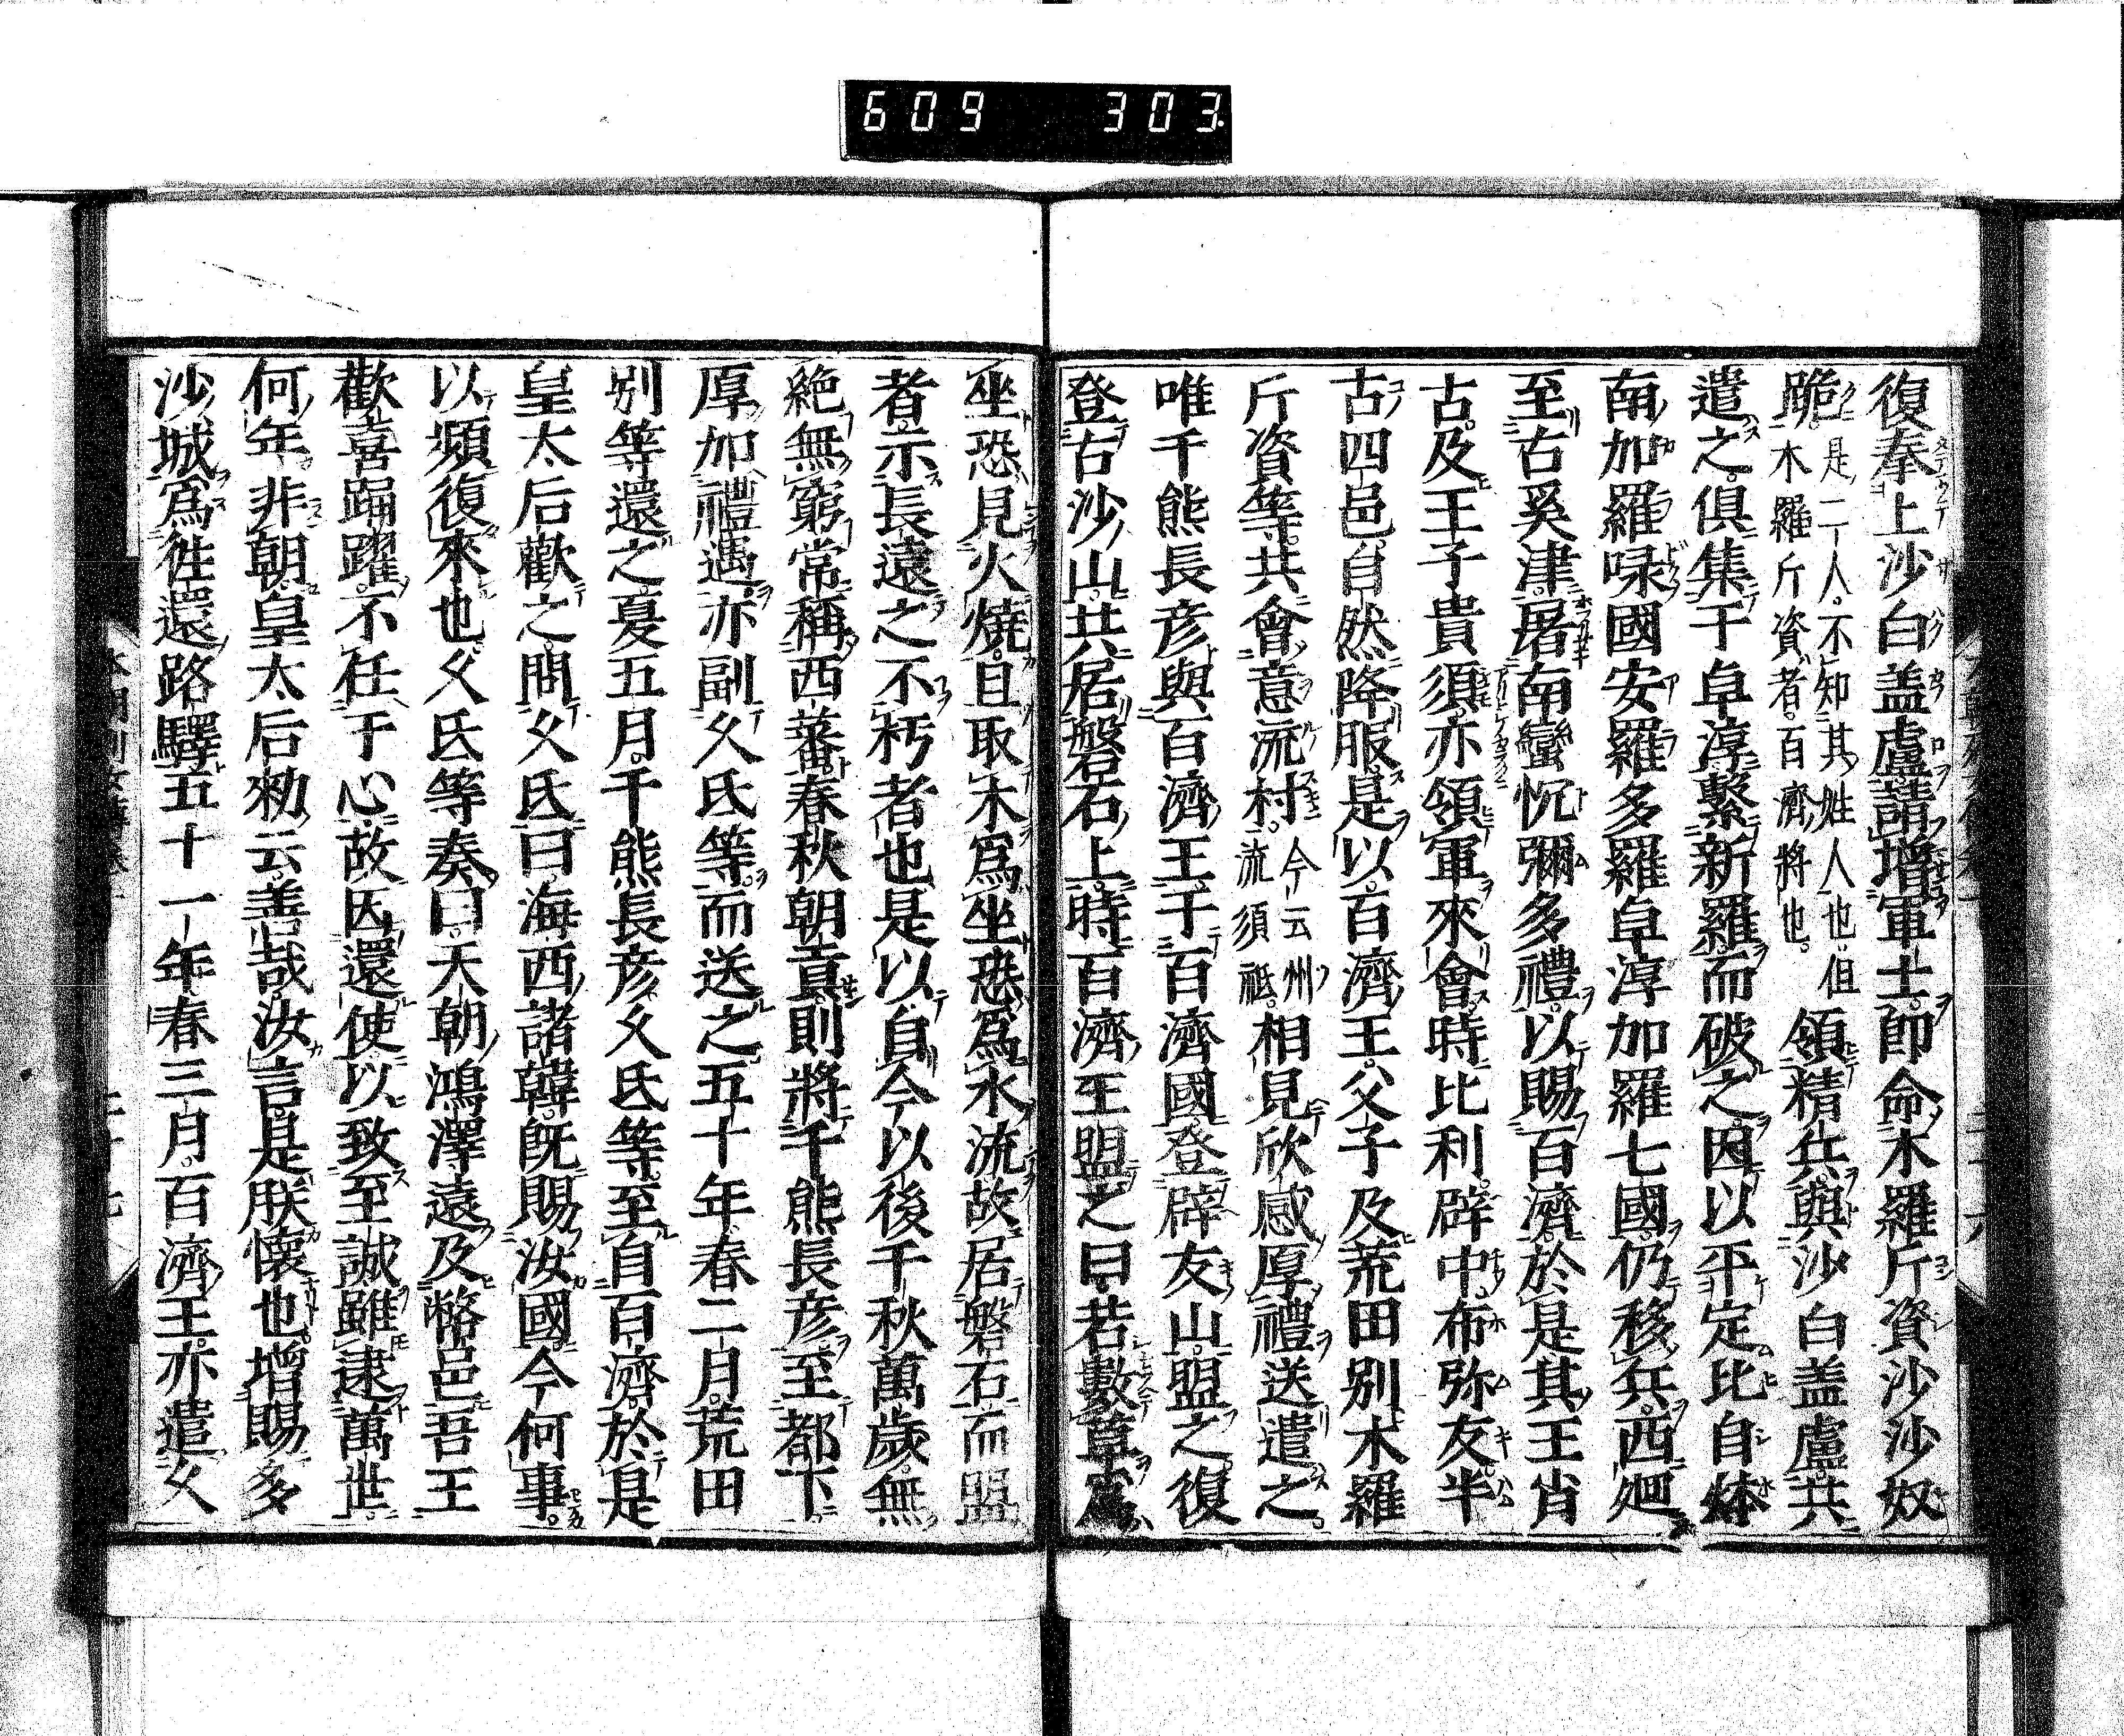 609 303
復奉上沙白盖盧請增軍士即命木羅斤資沙沙奴
跪是二人不知其姓人也但木羅斤資者百濟將也領精兵與沙白盖盧共
遣之俱集于卓淳擊新羅而破之因以平定比自㶱
南加羅㖨國安羅多羅卓淳加羅七國仍移兵西廻
至古奚津屠南蠻忱彌多禮以賜百濟於是其王肖
古及王子貴須亦領軍來會時比利辟中布弥友半
古四邑自然降服是以百濟王父子及荒田別木羅
斤資等共會意流村今云州流須祇相見欣感厚禮送遣之
唯千熊長彦與百濟王于百濟國登辟友山盟之復
登古沙山共居磐石上時百濟王盟之曰若敷草爲
坐恐見火燒且取木爲坐恐爲水流故居磐石而盟
者示長遠之不朽者也是以自今以後千秋萬歲無
絶無窮常稱西蕃春秋朝貢則將千熊長彦至都下
厚加禮遇亦副久氐等而送之五十年春二月荒田
別等還之夏五月千熊長彦久氐等至自百濟於是
皇太后歡之問久氐曰海西諸韓既賜汝國今何事
以頻復來也久氐等奏曰天朝鴻澤遠及弊邑吾王
歡喜踊躍不任于心故因還使以致至誠雖逮萬世
何年非朝皇太后勑云善哉汝言是朕懷也增賜多
沙城爲徃還路驛五十一年春三月百濟王亦遣久